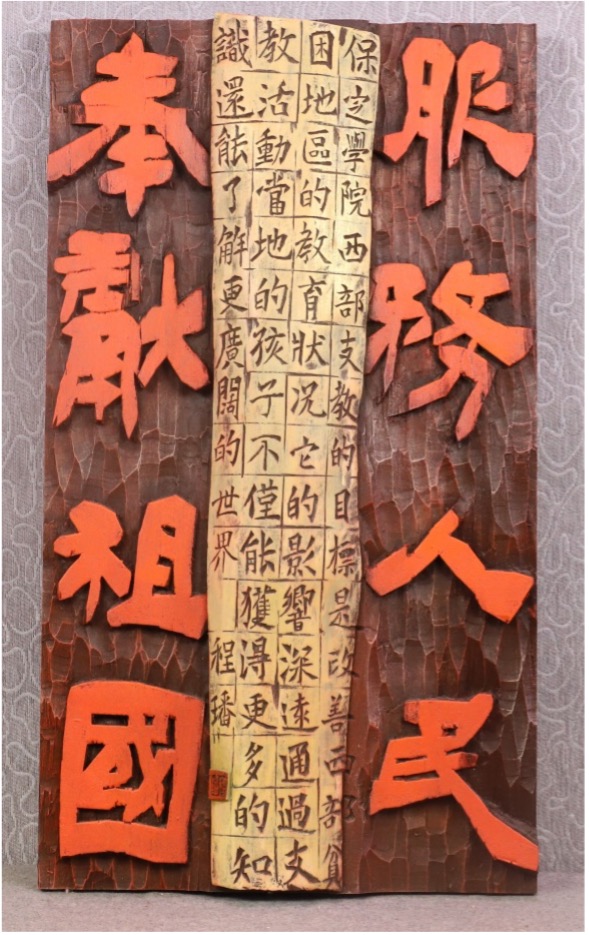 服務人民
保定學院西部支教的目標是改善西部貧
困地區的教育狀况它的影響深遠通過支
教活動當地的孩子不僅能獲得更多的知
識還能了解更廣闊的世界
程璠
奉獻祖國